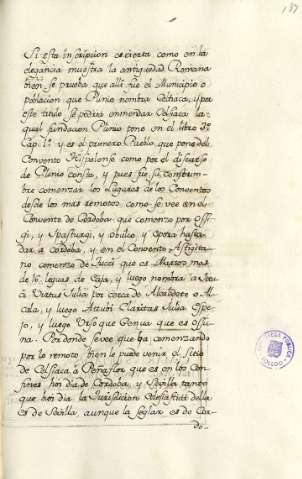 137
Si esta inscripcion es cierta como en la
elegancia muestra la antiguedad Romana
bien se prueba que alli fue el Municipio o
poblacion que Plinio nombra Celtiaca, y por
este titulo se podria enmendar Celsiaca la
qual fundacion Plinio pone en el libro 3º
Cap. 1º y es el primero Pueblo que pone del
Convento Hispalense como por el discurso
de Plinio consta, y pues fue su costum-
bre comenzar los Lugares de los Conventos
desde los mas remotos, como se vee en el
Convento de Cordoba que comenzo por Ossi-
gi, y Spasturgi, y Obulco, y
a Cordoba, y en el Convento Astigita-
no comenzo de Tucci que es Martos mas
de 16 leguas de Ecija, y luego nombra a Itu-
ci Virtus Julia por cerca de Alcaudete o Al-
cala, y luego Attubi Claritas Julia Espe-
jo, y luego Urso que Genua que es Osu-
na. Por donde se vee que ba comenzando
por lo remoto bien le puede venir el sitio
de Celsiaca à Peñaflor que es en los Con-
fines hoi dia de Cordoba, y Sevilla tanto
que hoi dia la Jurisdicion
es de Sevilla, aunque la seglar es de Cor-
do-